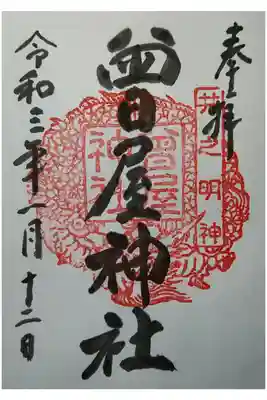 奉拝
井之明神
曾屋神社
曾屋神社
令和三年一月十二日